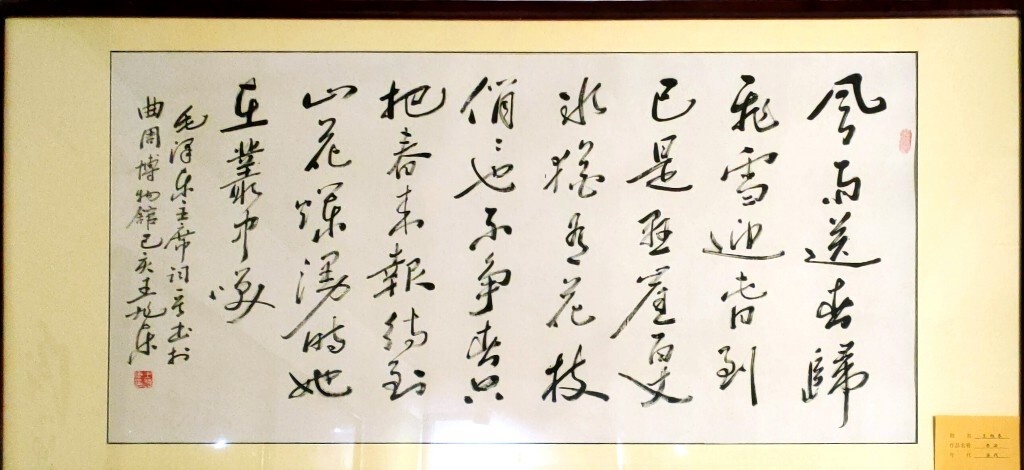 風雨送春歸
飛雪迎春到
已是懸崖百丈
冰猶有花枝
俏々也不爭春只
把春來報待到
山花爛漫時她
在叢中笑
毛澤東主席詞一首書於
曲周博物館己亥王旭東